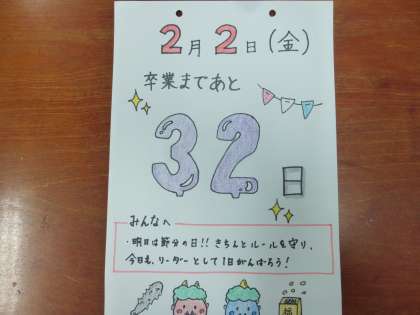 2月2日(金)
卒業まであと
32日
みんなへ
・明日は節分の日!! きちんとルールを守り、
今日も、リーダーとして1日がんばろう!
福